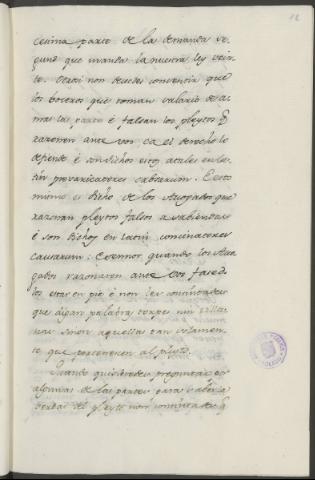 12
cesima parte de la demanda se
gund que manda la nuestra ley vein
te. Otrosi non devedes consentir que
los bozeros que toman salario de a
mas las partes é falsan los pleytos
razonen ante vos ca el derecho lo
defiende é son dichos estos atales en la
tin prevaricatores. Eesto
mismo es dicho de los Avogados que
razonan pleytos falsos a sabiendas
é son dichos en latin concinatores
causarum. E commo quando los Avo
gados razonaren ante vos fazed
los estar en pie é non les consintades
que digan palabras torpes nin villa
nas sinon aquellas tan solamen
te que pertenecen al pleyto.
Quando quisieredes preguntar
algunas de las partes para saber la
verdad del pleyto non consintades q